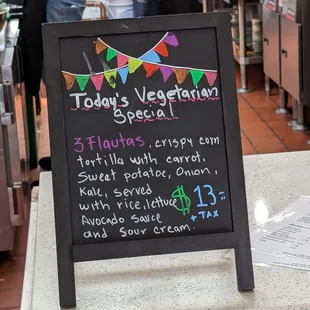 Today's Vegetarian
Special
3 Flautas, crispy corn
tortilla with carrot,
Sweet potatoe, Onion,
Kale, served
with rice, lettuce
Avocado sauce
and sour cream.
$13-
+ TAX